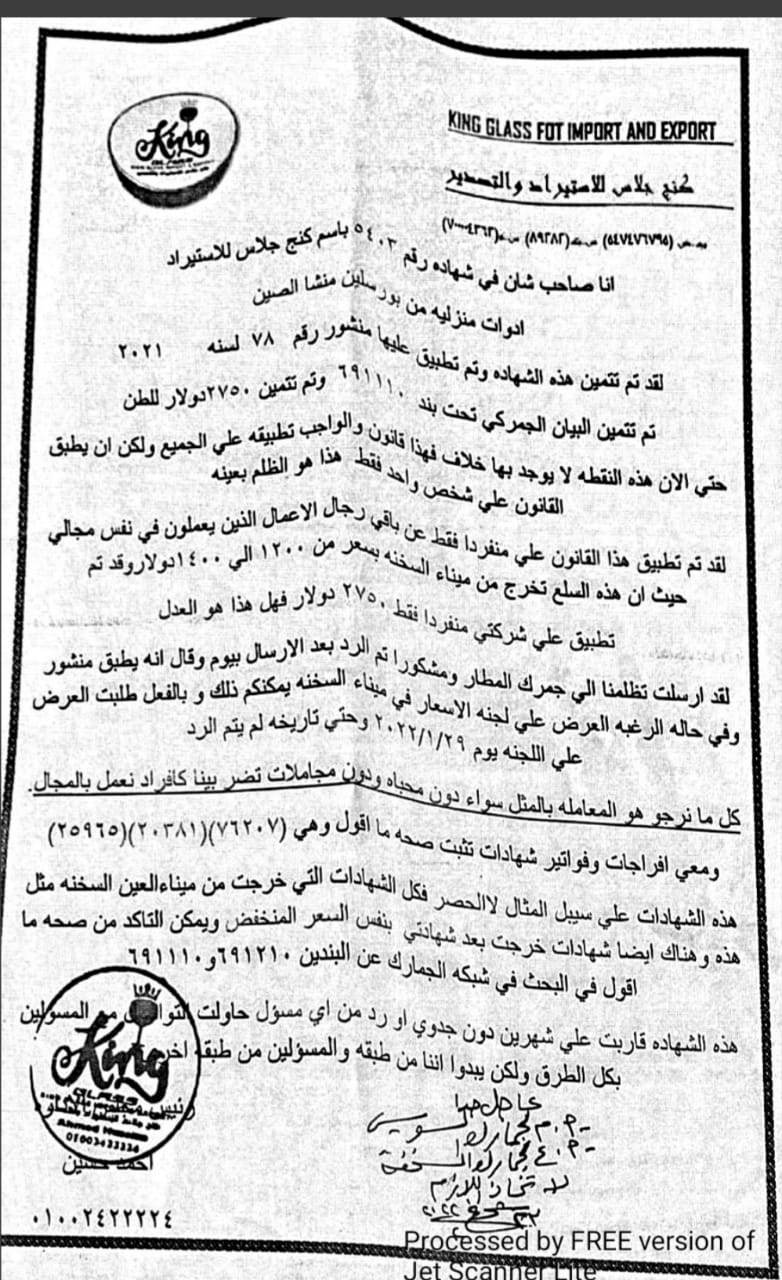 King
GLASS
KING GLASS FOT IMPORT AND EXPORT
كنج جلاس للاستيراد والتصدير
(٥٤٧٤٧٦٧٩٥) (٨٩٢٨٢)
انا صاحب شان في شهاده رقم ٥٤٠٣ باسم كنج جلاس للاستيراد
ادوات منزليه من بورسلين منشا الصين
لقد تم تتمين هذه الشهاده وتم تطبيق عليها منشور رقم ٧٨ لسنه ٢٠٢١
تم تتمين البيان الجمركي تحت بند ٦٩١١١٠ وتم تتمين ٢٧٥٠دولار للطن
حتي الان هذه النقطه لا يوجد بها خلاف فهذا قانون والواجب تطبيقه علي الجميع ولكن ان يطبق
القانون علي شخص واحد فقط هذا هو الظلم بعينه
لقد تم تطبيق هذا القانون علي منفردا فقط عن باقي رجال الاعمال الذين يعملون في نفس مجالي
حيث ان هذه السلع تخرج من ميناء السخنه بسعر من ١٢٠٠ الي ١٤٠٠دولاروقد تم
تطبيق علي شركتي منفردا فقط ٢٧٥٠ دولار فهل هذا هو العدل
لقد ارسلت تظلمنا الي جمرك المطار ومشكورا تم الرد بعد الارسال بيوم وقال انه يطبق منشور
وفي حاله الرغبه العرض علي لجنه الاسعار في ميناء السخنه يمكنكم ذلك و بالفعل طلبت العرض
علي اللجنه يوم ٢٠٢٢/١/٢٩ وحتي تاريخه لم يتم الرد
كل ما نرجو هو المعامله بالمثل سواء دون محباه ودون مجاملات تضر بينا كافراد نعمل بالمجال.
ومعي افراجات وفواتير شهادات تثبت صحه ما اقول وهي (٧٦٢٠٧)(٢٠٣٨١)(٢٥٩٦٥)
هذه الشهادات علي سيبل المثال لاالحصر فكل الشهادات التي خرجت من ميناءالعين السخنه مثل
هذه وهناك ايضا شهادات خرجت بعد شهادتي بنفس السعر المنخفض ويمكن التاكد من صحه ما
اقول في البحث في شبكه الجمارك عن البندين ٦٩١٢١٠و٦٩١١١٠
هذه الشهاده قاربت علي شهرين دون جدوي او رد من اي مسؤل حاولت التواصل مع المسولين
بكل الطرق ولكن يبدوا اننا من طبقه والمسؤلين من طبقه اخري
King
GLASS
Ahmed
رئيس
احمد حسين
٠١٠٠٢٤٢٢٢٢٤
عاجل جدا
السويس
لاتخاذ اللازم
٢٠٢٢
Processed by FREE version of
Jet Scanner Lite